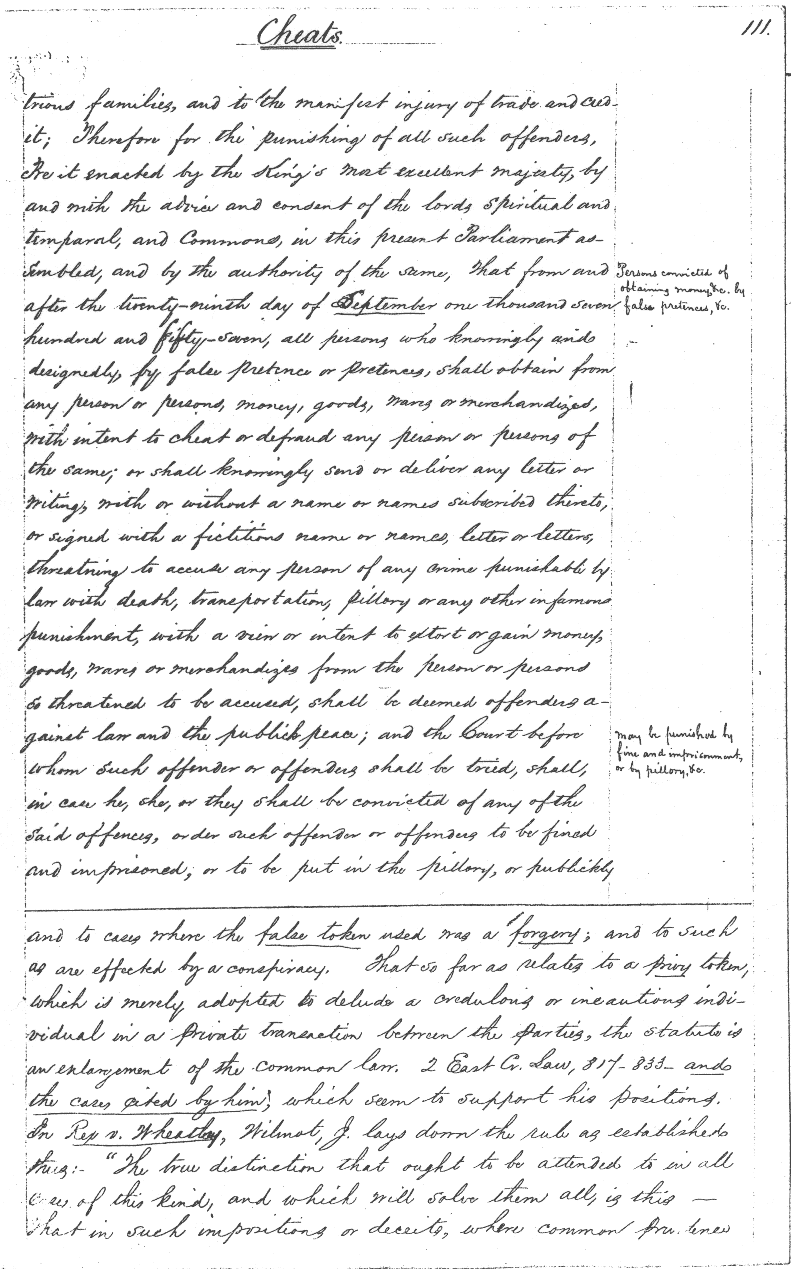 Cheats.
111.
trious families, and to the manifest injury of trade and cred-
it; Therefore for the punishing of all such offenders,
Be it enacted by the King's most excellent majesty, by
and with the advice and consent of the lords spiritual and
temporal, and Commons, in this present Parliament as-
sembled, and by the authority of the same, That from and
after the twenty-ninth day of September one thousand seven
hundred and fifty-seven, all persons who knowingly and
designedly, by false pretence or pretences, shall obtain from
any person or persons, money, goods, wares or merchandizes,
with intent to cheat or defraud any person or persons of
the same; or shall knowingly send or deliver any letter or
writing, with or without a name or names subscribed thereto,
or signed with a fictitious name or names, letter or letters,
threatning to accuse any person of any crime punishable by
law with death, transportation, pillory or any other infamous
punishment, with a view or intent to extort or gain money,
goods, wares or merchandizes from the person or persons
so threatened to be accused, shall be deemed offenders a-
gainst law and the publick peace; and the Court before
whom such offender or offenders shall be tried, shall,
in case he, she, or they shall be convicted of any of the
said offences, order such offender or offenders to be fined
and imprisoned, or to be put in the pillory, or publickly
Persons convicted of
obtaining money, &c. by
false pretences, &c.
may be punished by
fine and imprisonment,
or by pillory, &c.
and to cases where the false token used was a forgery; and to such
as are effected by a conspiracy. That so far as relates to a privy token,
which is merely adopted to delude a credulous or incautious indi-
vidual in a private transaction between the parties, the statute is
an enlargement of the common law. 2 East Cr. Law, 817-833- and
the cases cited by him, which seem to support his positions.
In Rex v. Wheatley, Wilmot, J. lays down the rule as established
thus:- "The true distinction that ought to be attended to in all
cases of this kind, and which will solve them all, is this —
that in such impositions or deceits, where common prudence